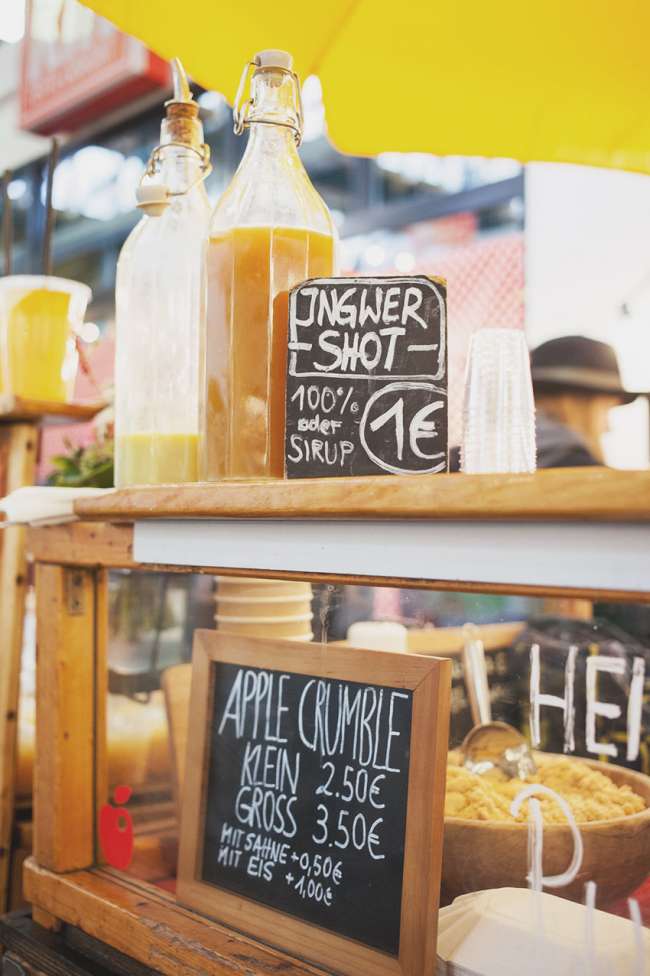 INGWER
- SHOT -
100%
oder
SIRUP
1€
APPLE CRUMBLE
KLEIN 2.50€
GROSS 3.50€
MIT SAHNE +0,50€
MIT EIS +1,00€
HEI
P